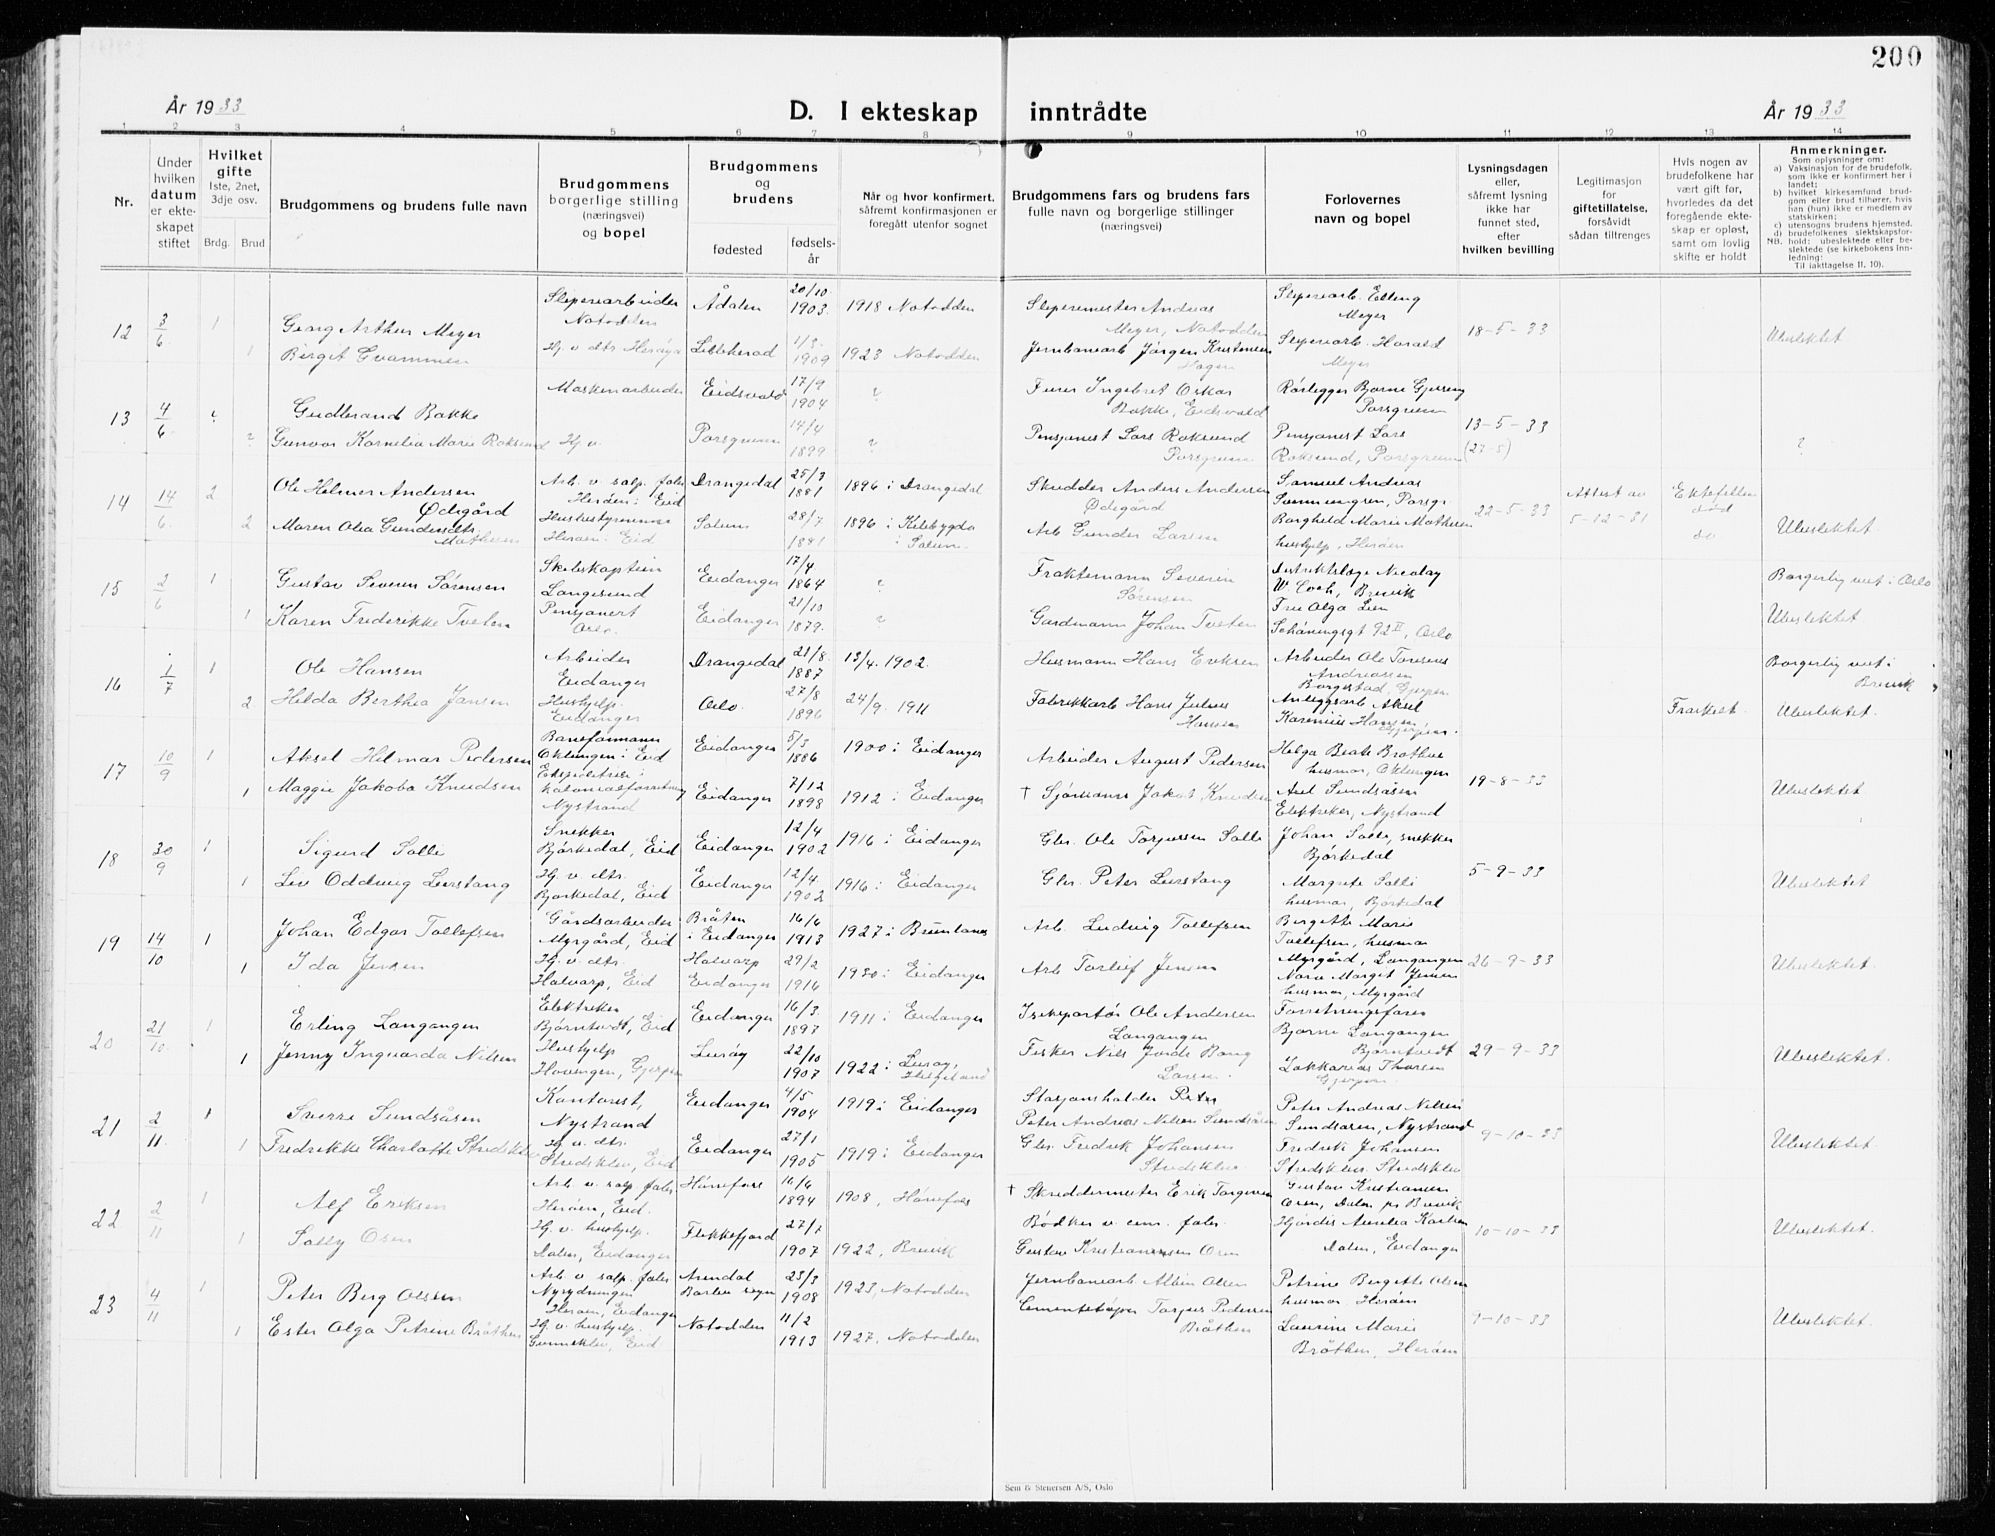 200
År 1933
D. I ekteskap inntrådte
År 1933
1 2 3 4 5 6 7 8 9 10 11 12 13 14
Nr.
Under hvilken datum er ekteskapet stiftet
Hvilket gifte
1ste, 2net, 3dje osv.
Brdg. Brud
Brudgommens og brudens fulle navn
Brudgommens borgerlige stilling (næringsvei) og bopel
Brudgommens og brudens
fødested
fødselsår
Når og hvor konfirmert, såfremt konfirmasjonen er foregått utenfor sognet
Brudgommens fars og brudens fars fulle navn og borgerlige stillinger (næringsvei)
Forlovernes navn og bopel
Lysningsdagen eller, såfremt lysning ikke har funnet sted, efter hvilken bevilling
Legitimasjon for giftetillatelse, forsåvidt sådan tiltrenges
Hvis nogen av brudefolkene har vært gift før, hvorledes da det foregående ekteskap er opløst, samt om lovlig skifte er holdt
Anmerkninger.
Som oplysninger om:
a) Vaksinasjon for de brudefolk, som ikke er konfirmert her i landet;
b) hvilket kirkesamfund brudgom eller brud tilhører, hvis han (hun) ikke er medlem av statskirken;
c) utensogns brudens hjemsted.
d) brudefolkenes slektskapsforhold: ubeslektede eller beslektede (se kirkebokens innledning:
NB.
Til iakttagelse 11, 10).
12 3/6 1 Georg Arthur Meyer Sliperiarbeider Notodden Ådalen 20/10 1903 1918 Notodden Slipemester Andreas Meyer, Notodden Sliperiarb. Elling Meyer 18-5-33
1 Birgit Gvammen Hj. v. dts Herøya Lilleherad 1/3 1909 1923 Notodden Jernbanearb Jørgen Kristensen Hagen Sliperiarb. Harald Meyer Ubeslektet
13 4/6 ? Gudbrand Bakke Maskinarbeider Eidsvold 17/9 1904 ? Furer Ingebret Oskar Bakke, Eidsvold Rørlegger Bjarne Gjersøy Porsgrunn 13-5-33
? Gunvor Kornelia Marie Roksund Hj. v. Porsgrunn 14/4 1899 ? Pensjonist Lars Roksund Porsgrunn Pensjonist Lars Roksund, Porsgrunn (27-5) ?
14 14/6 2 Ole Helmer Andersen Ødegård Arb. v. salp. fabr. Herøen i Eid Drangedal 25/3 1881 1896 i Drangedal Skredder Anders Andersen Ødegård Samuel Andreas Sammengren, Porsgr. 22-5-33 Attest av 5-12-31 Ektefellen død
2 Maren Olea Gundersdtr. Mathisen Husbestyrerinne Herøen i Eid Solum 28/7 1881 1896 i Kilebygda i Solum Arb Gunder Larsen Borghild Marie Mathisen hushjelp, Herøen do Ubeslektet
15 2/6 1 Gustav Severin Sørensen Skibskaptein Langesund Eidanger 17/4 1864 ? Fraktemann Severin Sørensen Distriktslæge Nicolay W. Coch, Brevik Borgerlig viet i Oslo
1 Karen Frederikke Tveten Pensjonert Oslo. Eidanger 21/10 1879. ? Gardmann Johan Tveten Fru Olga Lien Schøningsgt 92 II, Oslo Ubeslektet
16 1/7 1 Ole Hansen Arbeider Eidanger Drangedal 21/8 1887 13/4. 1902. Husmann Hans Eriksen Arbeider Ole Tomsens Andreassen Borgestad, Gjerpen Borgerlig viet i Brevik
2 Hilda Berthea Jansen Hushjelp. Eidanger Oslo. 27/8 1896 24/9. 1911 Fabrikkarb Hans Julius Hansen Anleggsarb Aksel Karenius Hansen Gjerpen. Fraskilt. Ubeslektet.
17 10/9 1 Aksel Helmar Pedersen Baneformann Oklungen i Eid Eidanger 5/3 1886 1900 i Eidanger Arbeider August Pedersen Helga Beate Bråthus husmor, Oklungen 19-8-33
1 Maggie Jakoba Knudsen Ekspeditrise i kolonialforretning Nystrand Eidanger 7/12 1898 1912 i Eidanger † Sjømann Jakob Knudsen Axel Sundsåsen Elektriker, Nystrand Ubeslektet
18 30/9 1 Sigurd Solli Snekker Bjørkedal, Eid Eidanger 12/4 1902 1916 i Eidanger Gbr. Ole Torjussen Solli Johan Solli, snekker Bjørkedal 5-9-33
1 Liv Oddvig Lerstang Hj. v. dts. Bjørkedal, Eid Eidanger 12/4 1902 1916 i Eidanger Gbr. Peter Lerstang Margrete Solli husmor, Bjørkedal Ubeslektet
19 14/10 1 Johan Edgar Tollefsen Gårdsarbeider Myrgård, Eid Bråten i Eidanger 16/6 1913 1927 i Brunlanes Arb. Ludvig Tollefsen Bergitte Marie Tollefsen, husmor Myrgård, Langangen 26-9-33
1 Ida Jensen Hj. v. dts. Halvarp, Eid Halvarp Eidanger 29/2 1916 1930 i Eidanger Arb Torleif Jensen Nora Margit Jensen husmor, Myrgård Ubeslektet.
20 21/10 1 Erling Langangen Elektriker Bjørntvedt, Eid Eidanger 16/3 1897 1911 i Eidanger Iskeportør Ole Andersen Langangen Forretningsfører Bjarne Langangen Bjørntvedt 29-9-33
1 Jenny Ingvarda Nilsen Hushjelp Hovengen, Gjerpen Lurøy 22/10 1907 1922 i Lurøy, Helgeland Fisker Nils Larsen. Zakkarias Thorsen Gjerpen. Ubeslektet.
21 2/11 1 Sverre Sundsåsen Kontorist, Nystrand Eidanger 4/5 1904 1919 i Eidanger Stasjonsholder Peter Peter Andreas Nilsen Sundsåsen Peter Andreas Nilsen Sundsåsen, Nystrand 9-10-33
1 Fredrikke Charlotte Stridsklev Hj. v. dts. Stridsklev, Eid Eidanger 27/1 1905 1919 i Eidanger Gbr. Fredrik Johansen Stridsklev Fredrik Johansen Stridsklev. Stridsklev Ubeslektet
22 2/11 1 Alf Eriksen Arb. v. salp. fabr. Herøen, Eid. Hønefoss 16/6 1894 1908, Hønefoss † Skreddermester Erik Torgersen Gustav Kristiansen Osen, Dalen pr Brevik 10-10-33
1 Solly Osen Hj. v. hushjelp. Dalen, Eidanger Flekkefjord 27/1 1907 1922, Brevik Bødker v. cem. fabr. Gustav Kristiansen Osen Hjørdis Amelia Karlsen Dalen, Eidanger Ubeslektet.
23 4/11 1 Peter Berg Olsen Arb v. salp. fabr Nyrydningen Herøen, Eidanger Arendal Barbu sogn 23/3 1908 1923, Notodden Jernbanearb. Albin Olsen Petrine Bergitte Olsen husmor, Herøen 9-10-33
1 Ester Olga Petrine Bråthen Hj. v. hushjelp. Gunneklev, Eid Notodden 11/2 1913 1927, Notodden Cementstøper Torjus Pedersen Bråthen Laurine Marie Bråthen, Herøen Ubeslektet.
Sem & Stenersen A/S, Oslo